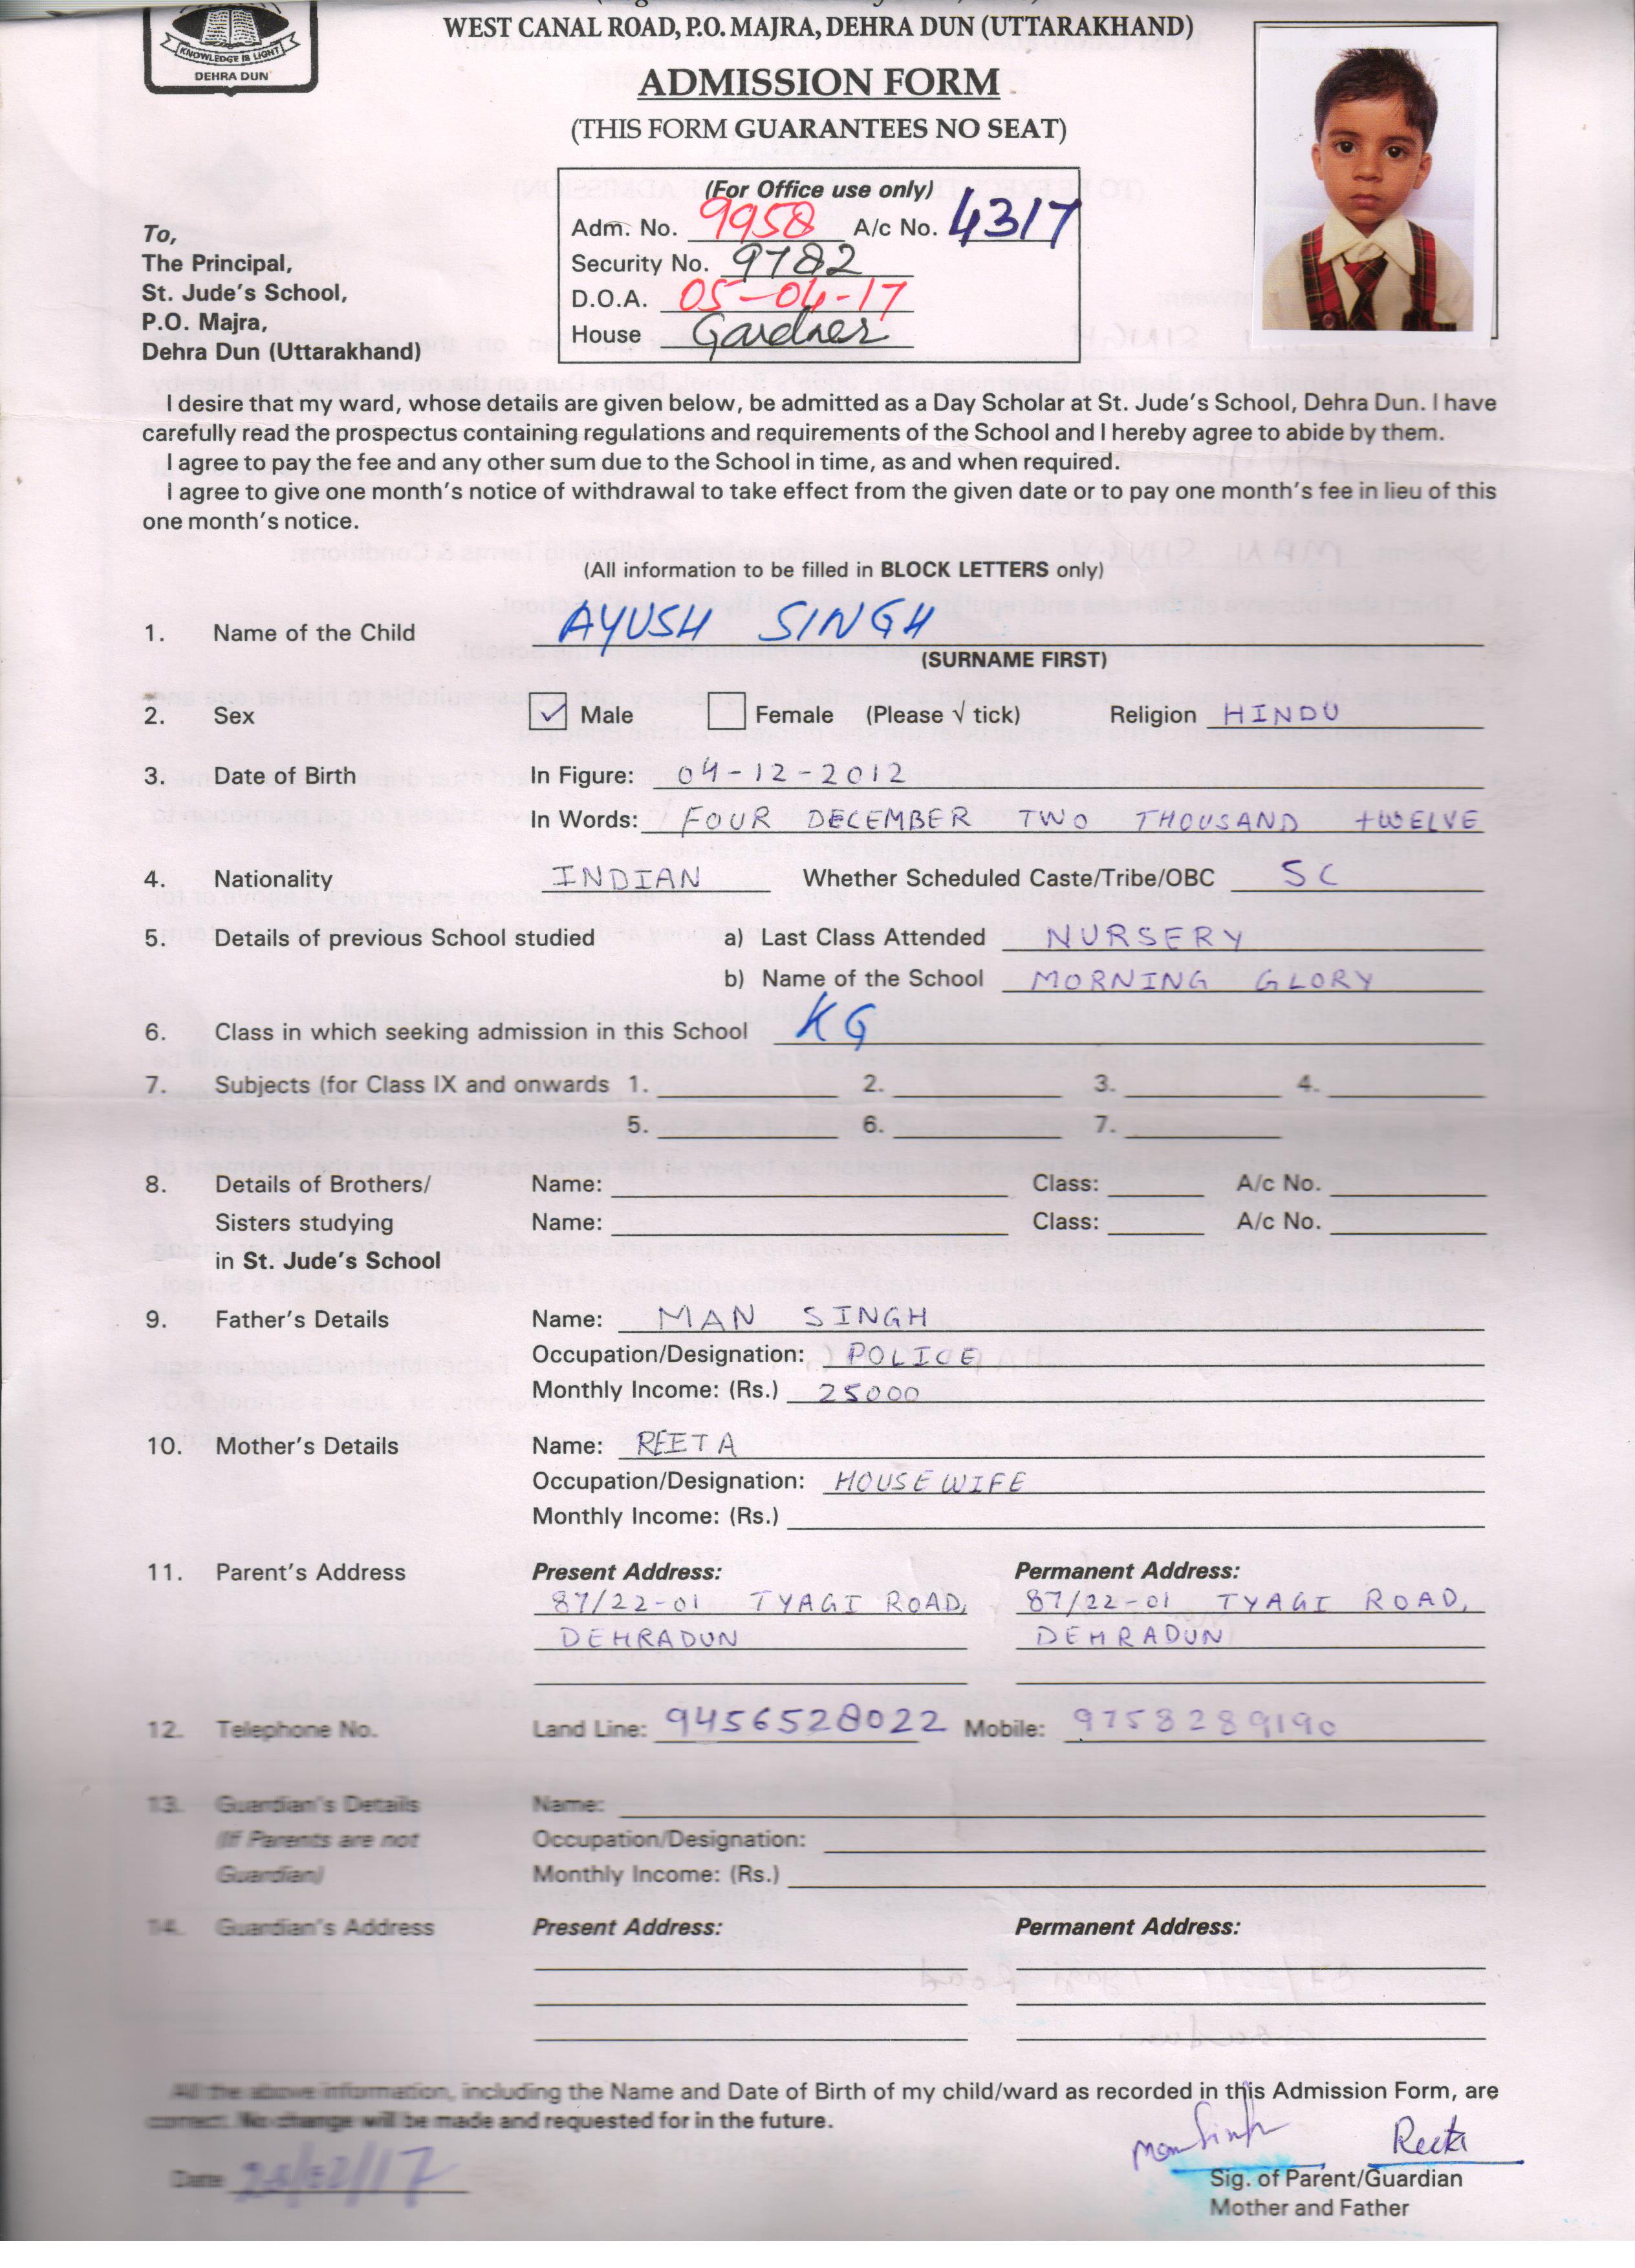 KNOWLEDGE IS LIGHT
DEHRA DUN
WEST CANAL ROAD, P.O. MAJRA, DEHRA DUN (UTTARAKHAND)
ADMISSION FORM
(THIS FORM GUARANTEES NO SEAT)
(For Office use only)
Adm. No. 9958 A/c No. 4317
Security No. 9782
D.O.A. 05-04-17
House Gardner
To,
The Principal,
St. Jude's School,
P.O. Majra,
Dehra Dun (Uttarakhand)
I desire that my ward, whose details are given below, be admitted as a Day Scholar at St. Jude's School, Dehra Dun. I have
carefully read the prospectus containing regulations and requirements of the School and I hereby agree to abide by them.
I agree to pay the fee and any other sum due to the School in time, as and when required.
I agree to give one month's notice of withdrawal to take effect from the given date or to pay one month's fee in lieu of this
one month's notice.
(All information to be filled in BLOCK LETTERS only)
1. Name of the Child AYUSH SINGH
(SURNAME FIRST)
2. Sex ✓ Male Female (Please √ tick) Religion HINDU
3. Date of Birth In Figure: 04-12-2012
In Words: FOUR DECEMBER TWO THOUSAND TWELVE
4. Nationality INDIAN Whether Scheduled Caste/Tribe/OBC SC
5. Details of previous School studied a) Last Class Attended NURSERY
b) Name of the School MORNING GLORY
6. Class in which seeking admission in this School KG
7. Subjects (for Class IX and onwards 1. 2. 3. 4.
5. 6. 7.
8. Details of Brothers/ Name: Class: A/c No.
Sisters studying Name: Class: A/c No.
in St. Jude's School
9. Father's Details Name: MAN SINGH
Occupation/Designation: POLICE
Monthly Income: (Rs.) 25000
10. Mother's Details Name: REETA
Occupation/Designation: HOUSE WIFE
Monthly Income: (Rs.)
11. Parent's Address Present Address: Permanent Address:
87/22-01 TYAGI ROAD, 87/22-01 TYAGI ROAD,
DEHRADUN DEHRADUN
12. Telephone No. Land Line: 9456528022 Mobile: 9758289190
13. Guardian's Details Name:
(If Parents are not Occupation/Designation:
Guardian) Monthly Income: (Rs.)
14. Guardian's Address Present Address: Permanent Address:
All the above information, including the Name and Date of Birth of my child/ward as recorded in this Admission Form, are
correct. No change will be made and requested for in the future.
Man Singh Reeta
Date
Sig. of Parent/Guardian
Mother and Father